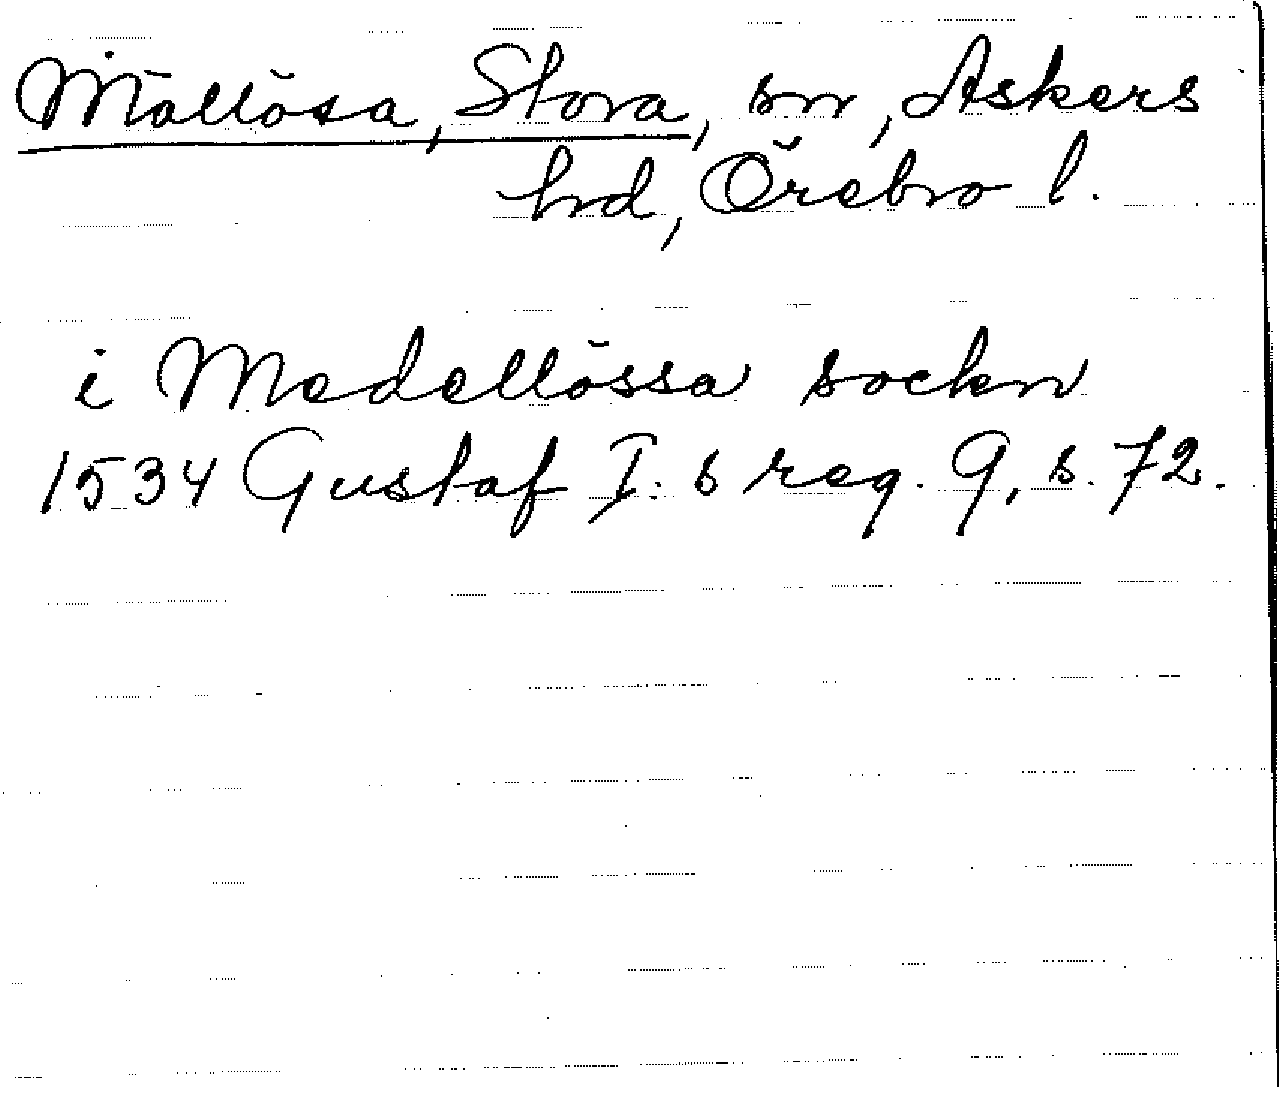 Möllösa, Stora, sn, Askers
hd, Örebro l.
i Medellössa sockn
1534 Gustaf I:s reg. 9, s. 72.